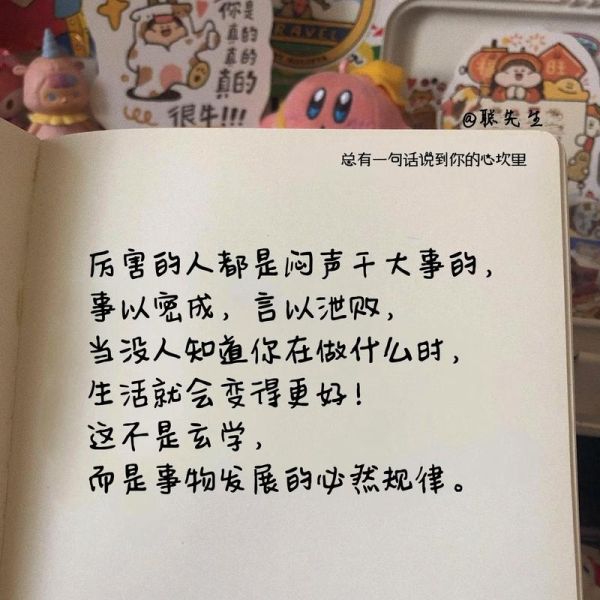 你是真的真的真的
很牛!!!
TRAVEL
福
旺
@聪先生
总有一句话说到你的心坎里
厉害的人都是闷声干大事的，
事以密成，言以泄败，
当没人知道你在做什么时，
生活就会变得更好！
这不是玄学，
而是事物发展的必然规律。